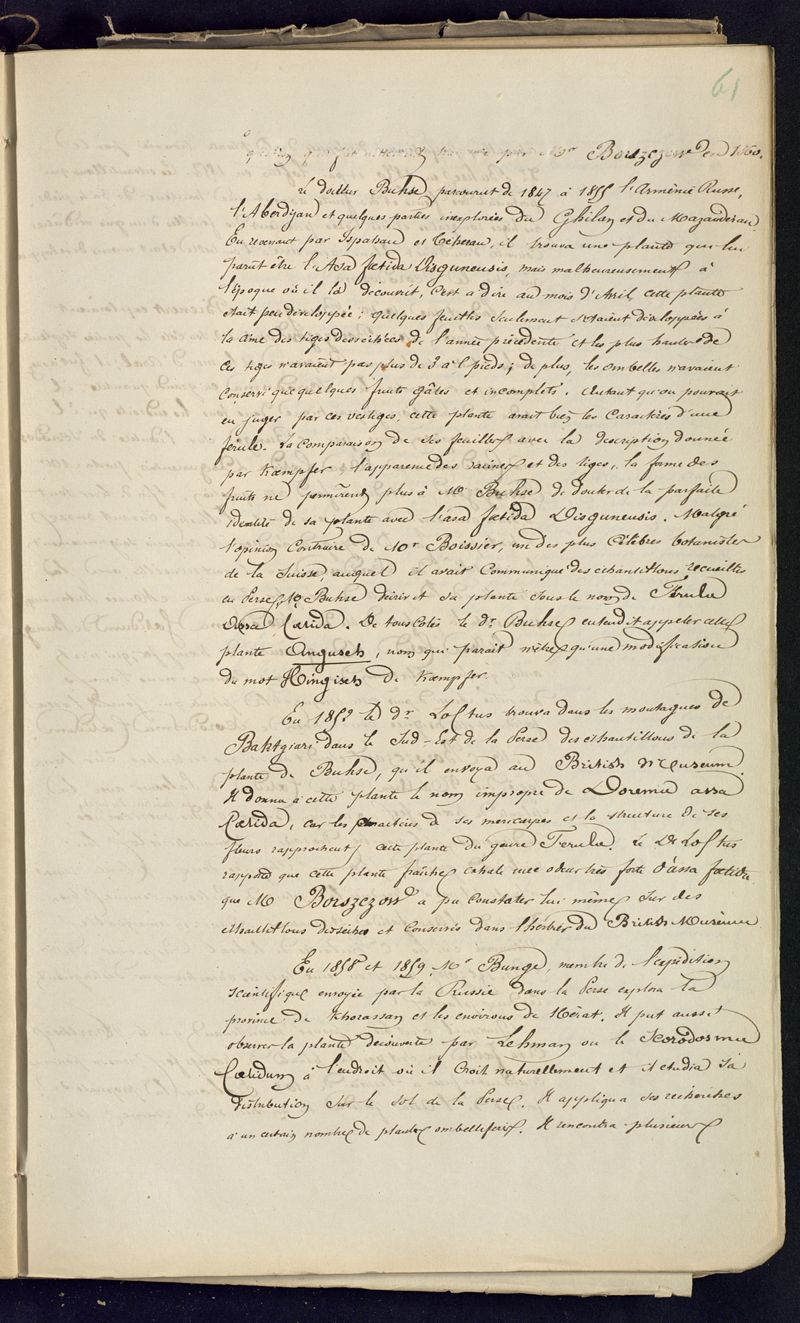 61
question qui fut par Mr Borszczow en 1860.
Le docteur Buhse parcourut de 1847 à 1855 l'Arménie Russe,
l'Aberdijan et quelques parties inexplorées du Ghilan et du Mazanderan
En revenant par Ispahan et Téhéran, il trouva une plante qui lui
parut être l'Asa fœtida Disgunensis, mais malheureusement à
l'époque où il la découvrit, c'est à dire au mois d'Avril cette plante
était peu développée : quelques feuilles seulement s'étaient développées à
la cime des tiges desséchées de l'année précédente et les plus hautes de
ces tiges n'avaient pas plus de 3 à pieds ; de plus, les ombelles n'avaient
conservé que quelques fruits gâtés et incomplets. Autant qu'on pouvait
en juger par ces vestiges, cette plante avait bien les caractères d'une
férule. La comparaison de ses feuilles avec la description donnée
par Kæmpfer l'apparence des racines et des tiges, la forme des
fruits ne permirent plus à Mr Buhse de douter de la parfaite
identité de sa plante avec l'asa fœtida Disgunensis. Malgré
l'opinion contraire de Mr Boissier, un des plus célèbres botanistes
de la Suisse auquel il avait communiqué des échantillons recueillis
en Perse, Mr Buhse décrivit sa plante sous le nom de Férula
Assa fœtida. De tous côtés le dr Buhse entendit appeler cette
plante Anguseh, nom qui paraît n'être qu'une modification
du mot Hingiseh de Kæmpfer.
En 185 le dr Loftus trouva dans les montagnes de
Baktyiari dans le Sud-Est de la Perse des échantillons de la
plante de Buhse, qu'il envoya au British Museum.
Il donna à cette plante le nom impropre de Dorema assa
fœtida, car les caractères de ses mericarpes et la structure de ses
fleurs rapprochent cette plante du genre Ferula. Le Dr Loftus
rapporte que cette plante fraîche exhale une odeur très forte d'assa fœtida
que Mr Borszczow a pu constater lui même sur des
échantillons desséchés et conservés dans l'herbier du British Muséum
En 1858 et 1859 Mr Bunge, membre de l'expédition
scientifique envoyée par la Russie dans la Perse explora la
province de Khorassan et les environs de Hérat. Il put aussi
observer la plante découverte par Lehman ou le Scorodosma
fœtidum à l'endroit où il croît naturellement et il étudia sa
distribution sur le sol de la Perse. Il appliqua ses recherches
à un certain nombre de plantes ombellifères. Il rencontra plusieurs